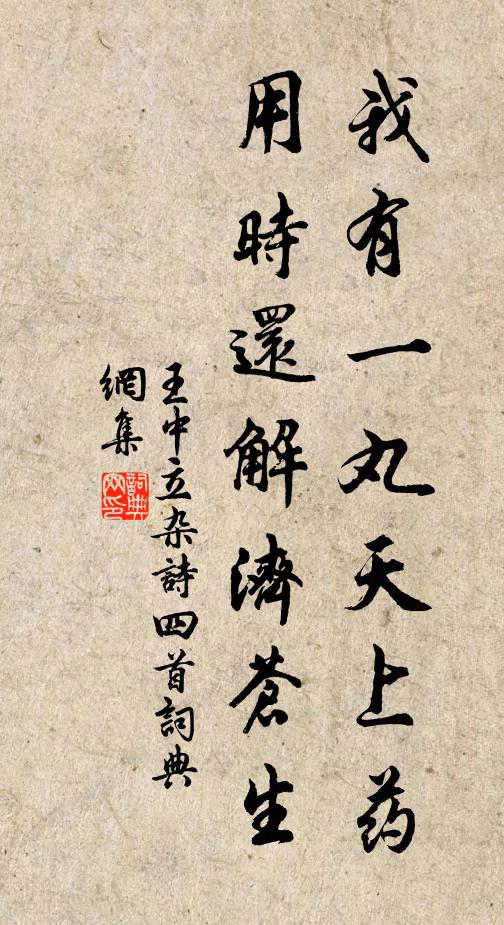 我有一丸天上药
用時還解濟蒼生
王中立杂詩四首詞典
網集
詞典
网印